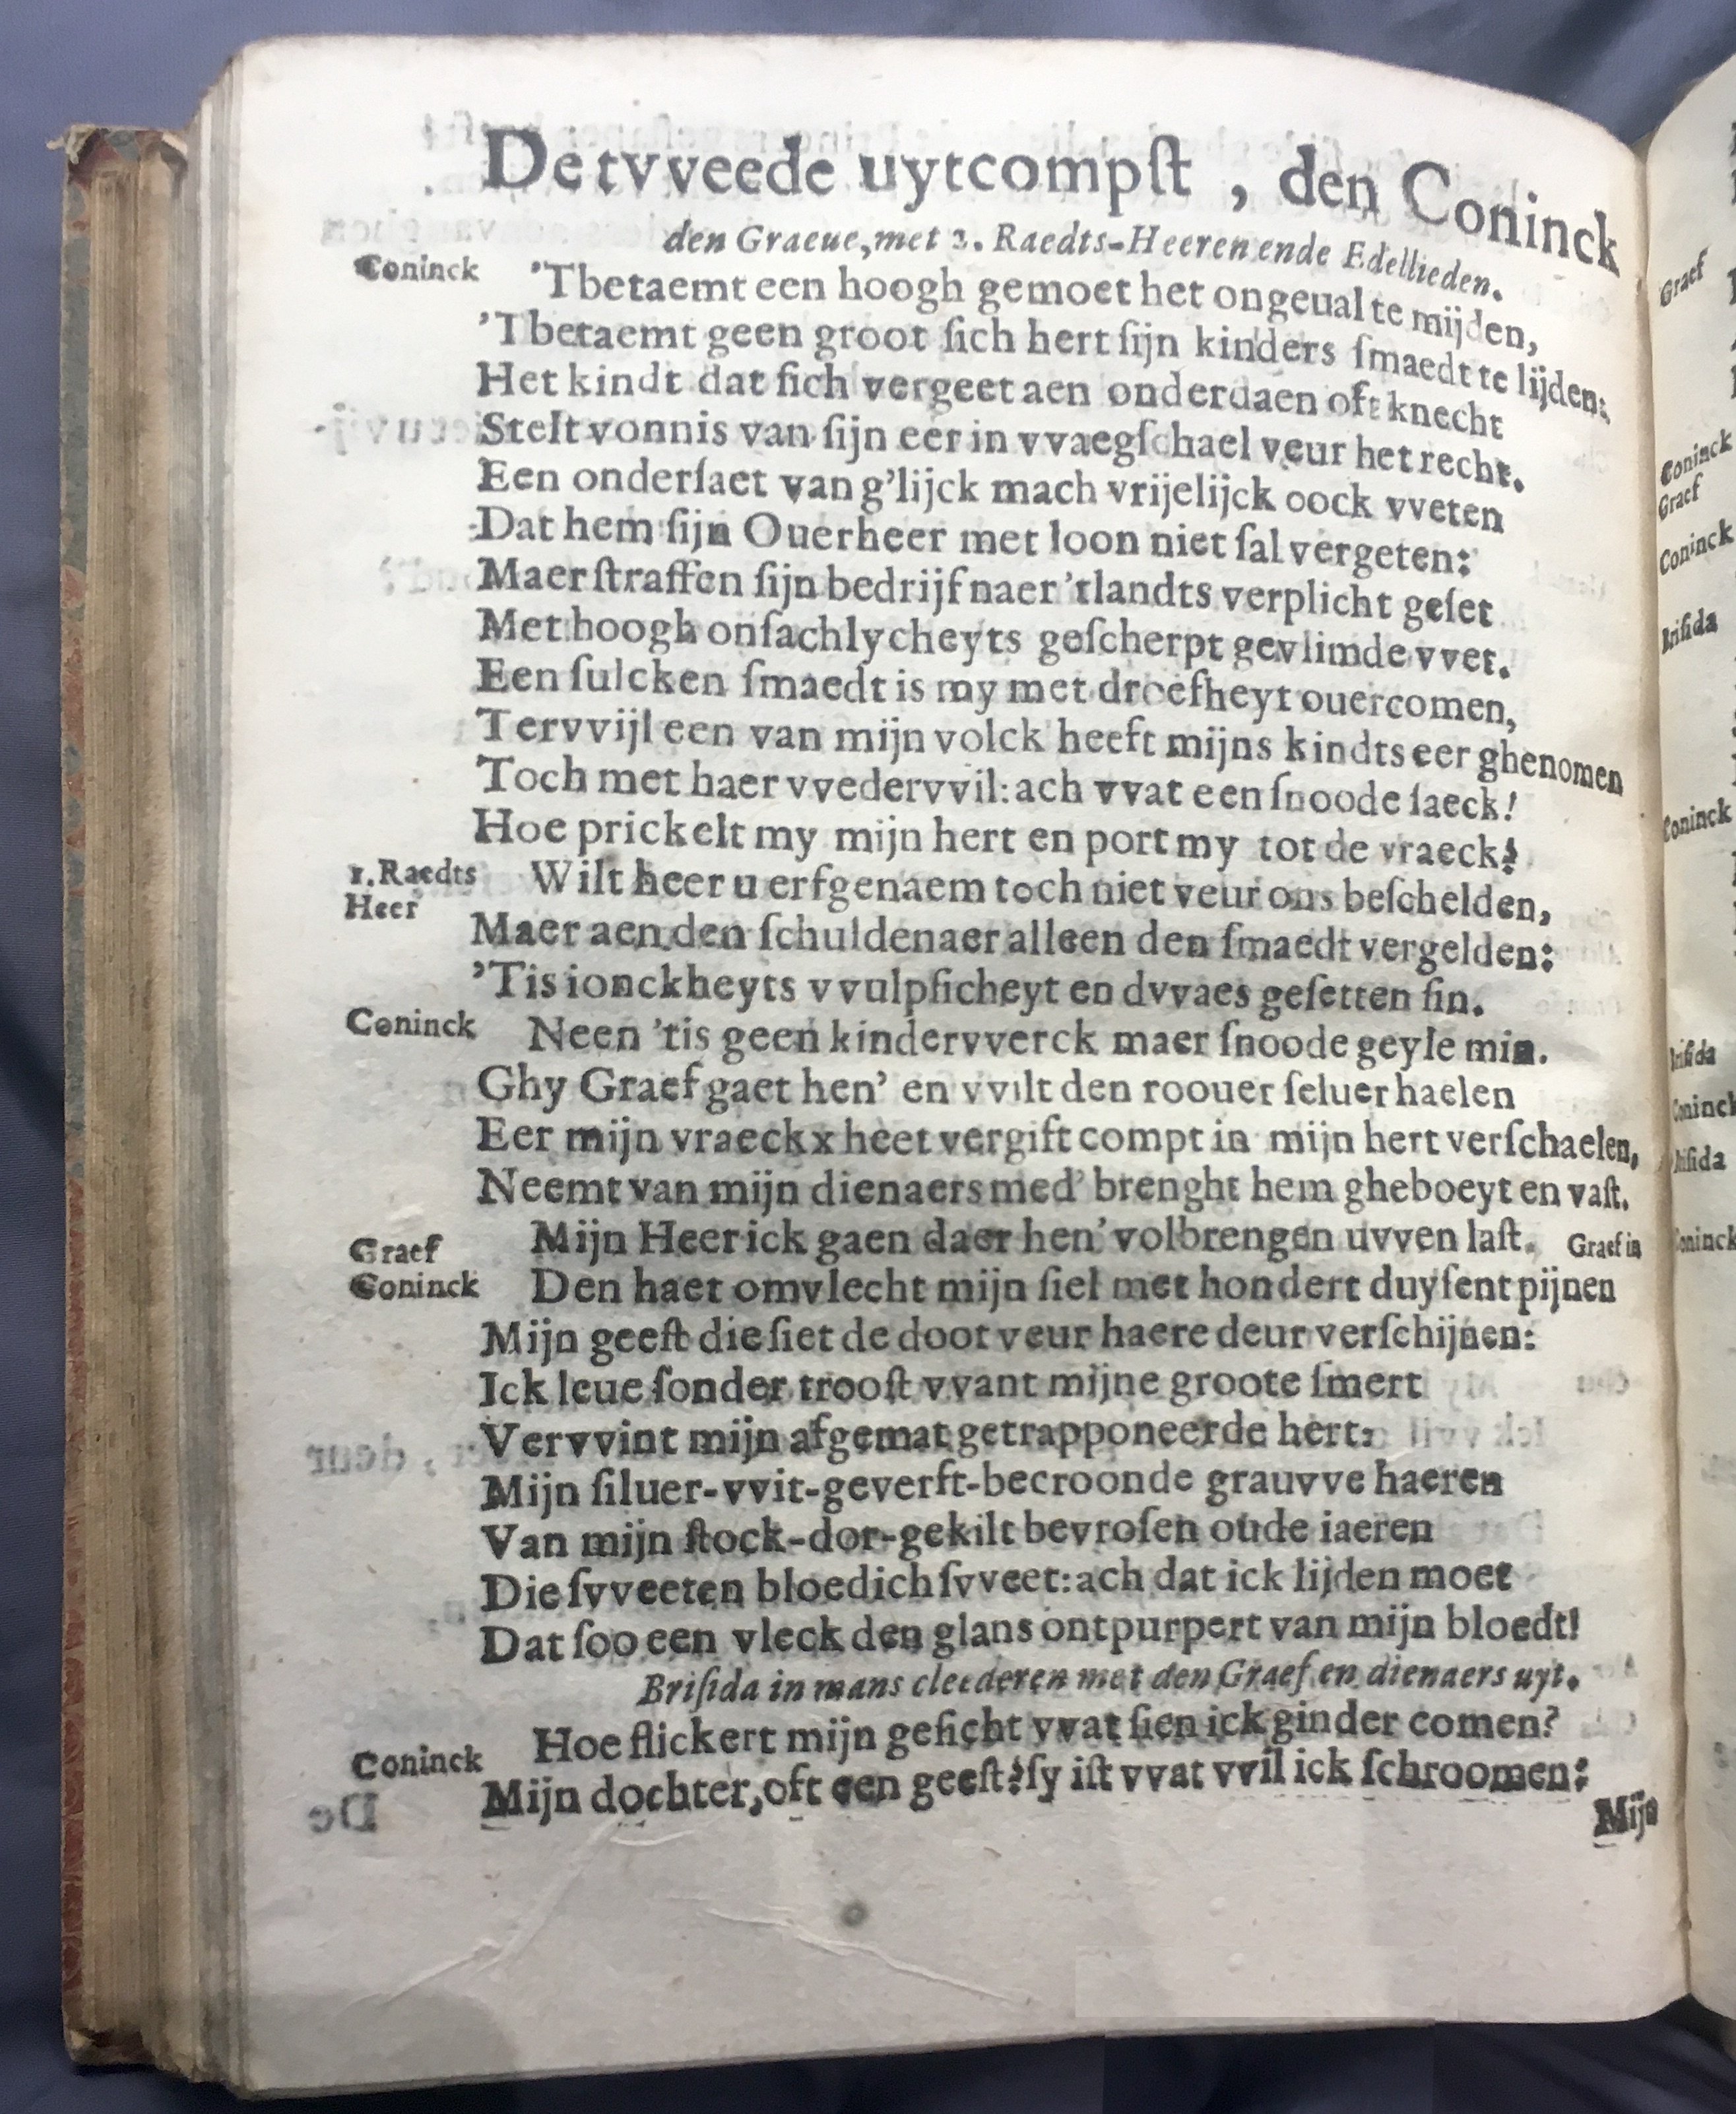 De tvveede uytcompſt , den Coninck
den Graeue, met 2. Raedts-Heeren ende Edellieden.
Coninck 'Tbetaemt een hoogh gemoet het ongeual te mijden,
'Tbetaemt geen groot ſich hert ſijn kinders ſmaedt te lijden:
Het kindt dat ſich vergeet aen onderdaen oft knecht
Stelt vonnis van ſijn eer in vvaegſchael veur het recht.
Een onderſaet van g'lijck mach vrijelijck oock vveten
Dat hem ſijn Ouerheer met loon niet ſal vergeten:
Maer ſtraffen ſijn bedrijf naer 'tlandts verplicht geſet
Met hoogh onſachlycheyts geſcherpt gevlimde vvet.
Een ſulcken ſmaedt is my met droefheyt ouercomen,
Tervvijl een van mijn volck heeft mijns kindts eer ghenomen
Toch met haer vvedervvil: ach vvat een ſnoode ſaeck!
Hoe prickelt my mijn hert en port my tot de vraeck!
1. Raedts Heer Wilt heer u erfgenaem toch niet veur ons beſchelden,
Maer aen den ſchuldenaer alleen den ſmaedt vergelden:
'Tis ionckheyts vvulpſicheyt en dvvaes geſetten ſin.
Coninck Neen 'tis geen kindervverck maer ſnoode geyle min.
Ghy Graef gaet hen' en vvilt den roouer ſeluer haelen
Eer mijn vraeckx heet vergift compt in mijn hert verſchaelen,
Neemt van mijn dienaers med' brenght hem gheboeyt en vaſt.
Graef Mijn Heer ick gaen daer hen' volbrengen uvven laſt. Graef in
Coninck Den haet omvlecht mijn ſiel met hondert duyſent pijnen
Mijn geeſt die ſiet de doot veur haere deur verſchijnen:
Ick leue ſonder trooſt vvant mijne groote ſmert
Vervvint mijn afgemat getrapponeerde hert:
Mijn ſiluer-vvit-geverft-becroonde grauvve haeren
Van mijn ſtock-dor-gekilt bevroſen oude iaeren
Die ſvveeten bloedich ſvveet: ach dat ick lijden moet
Dat ſoo een vleck den glans ontpurpert van mijn bloedt!
Briſida in mans cleederen met den Graef en dienaers uyt.
Coninck Hoe flickert mijn geſicht vvat ſien ick ginder comen?
Mijn dochter, oft een geeſt? ſy iſt vvat vvil ick ſchroomen:
Mijn
Graef
Coninck
Graef
Coninck
Briſida
Coninck
Briſida
Coninck
Briſida
Coninck